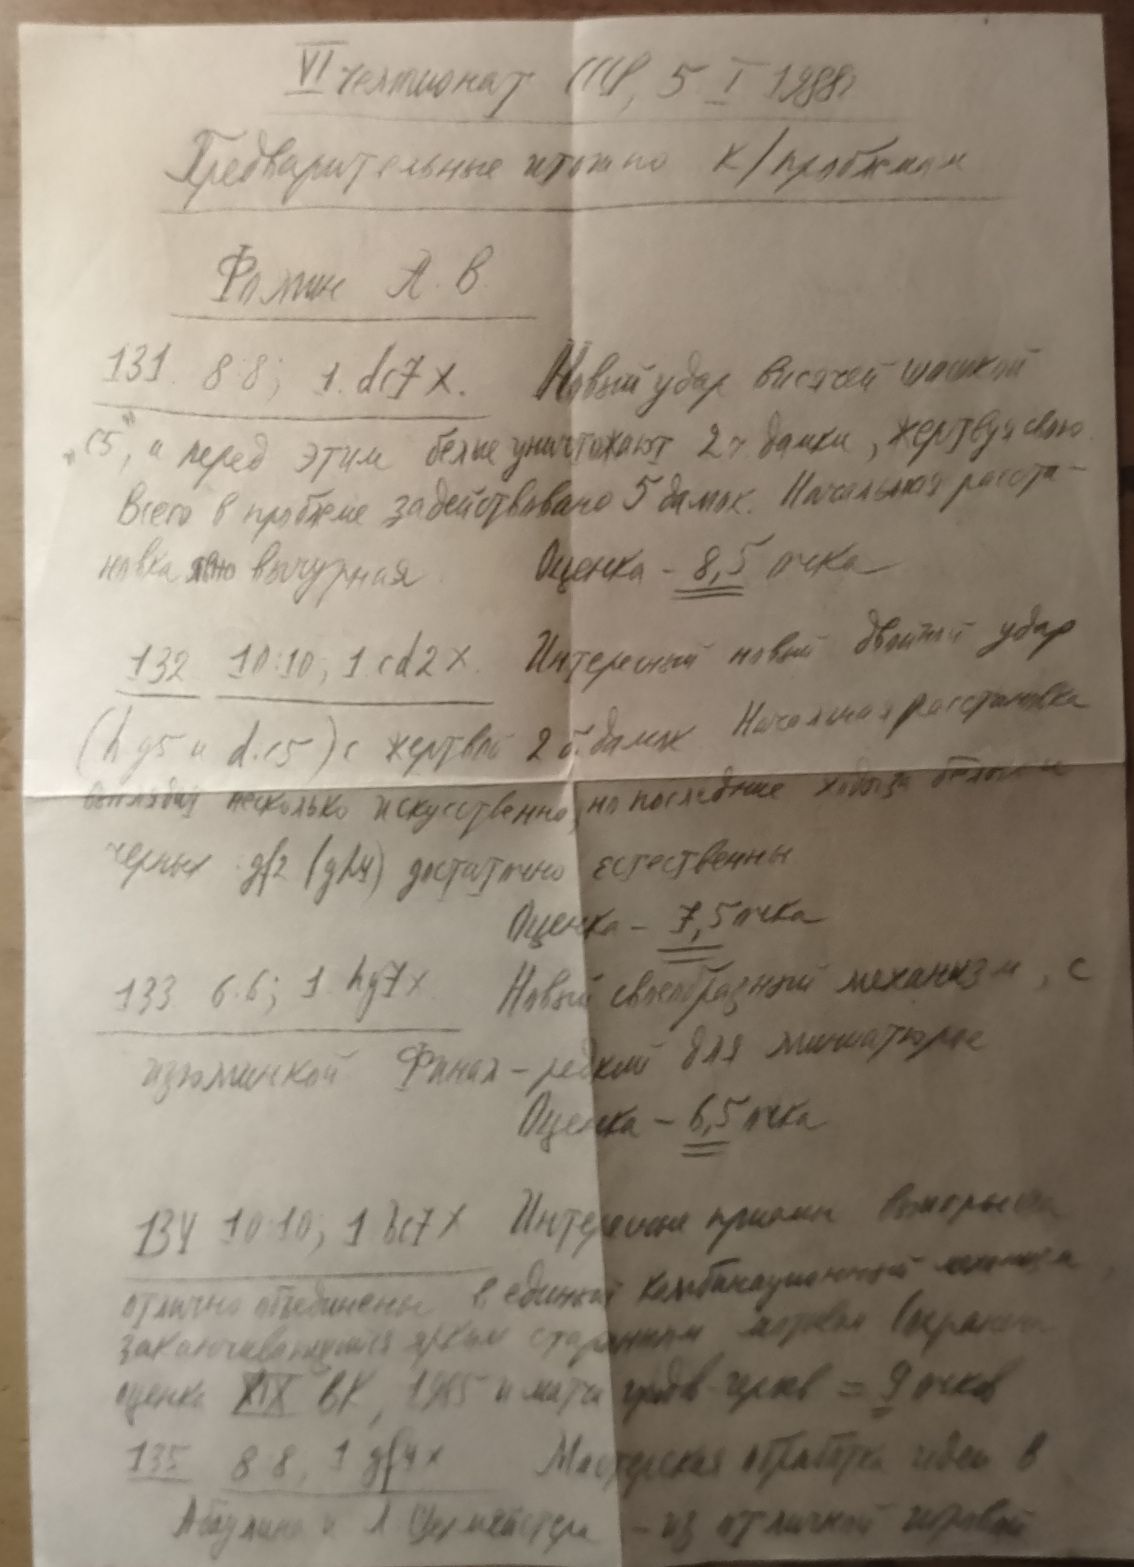 VI чемпионат СССР, 5 I 1988г
Предварительные итоги по к/проблемам
Фомин А. В.
131. 8:8; 1. dc7 X. Новый удар висячей шашкой
„c5", и перед этим белые уничтожают 2 ч. дамки, жертвуя свою.
Всего в проблеме задействовано 5 дамок. Начальная расста-
новка явно вычурная. Оценка – 8,5 очка
132 10:10; 1 cd2 X. Интересный новый двойной удар
(h.g5 и d.c5) с жертвой 2 б. дамок. Начальная расстановка
выглядит несколько искусственно, но последние ходы за белых и
черных gf2 (gh4) достаточно естественны
Оценка – 7,5 очка
133 6:6; 1. hg7x Новый своеобразный механизм, с
изюминкой. Финал – редкий для миниатюры
Оценка – 6,5 очка
134 10:10; 1 bc7 X Интересные приемы
отлично объединены в единый комбинационный механизм,
заканчивающийся ярким старинным
оценка XIX ВК, 1985 и = 9 очков
135 8:8, 1 gf4x Мастерская обработка идеи В
Абаулина и Л – из отличной игровой